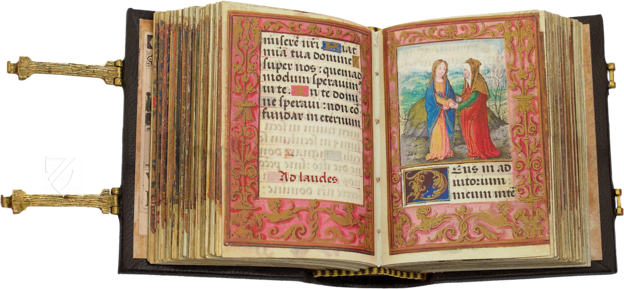 miserē nr̄i Fiat
mia tua domine
super nos : quemad
modum speravim
in te : In te domi
ne speravi : non cō
fundar in eternum
Ad laudes
Deus in ad
iutorium
meum intē